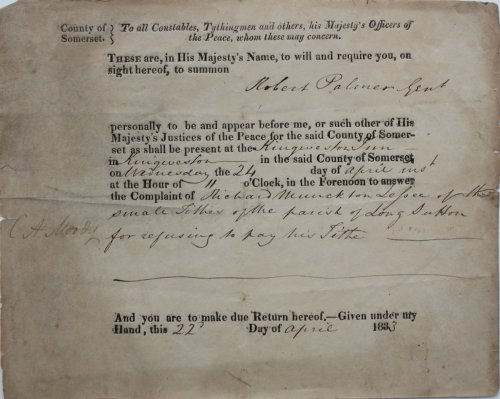 County of Somerset. } To all Constables, Tythingmen and others, his Majesty's Officers of
the Peace, whom these may concern.
THESE are, in His Majesty's Name, to will and require you, on
sight hereof, to summon
Robert Palmer Gent
personally to be and appear before me, or such other of His
Majesty's Justices of the Peace for the said County of Somer-
set as shall be present at the Kingweston Inn
in Kingweston in the said County of Somerset,
on Wednesday the 24 day of April inst
at the Hour of 11 o'Clock, in the Forenoon to answer
the Complaint of Richard Munckton Lessee of the
small Tithes of the parish of Long Sutton
C A Moody for refusing to pay his Tithe
And you are to make due Return hereof.—Given under my
Hand, this 22 Day of April 1833